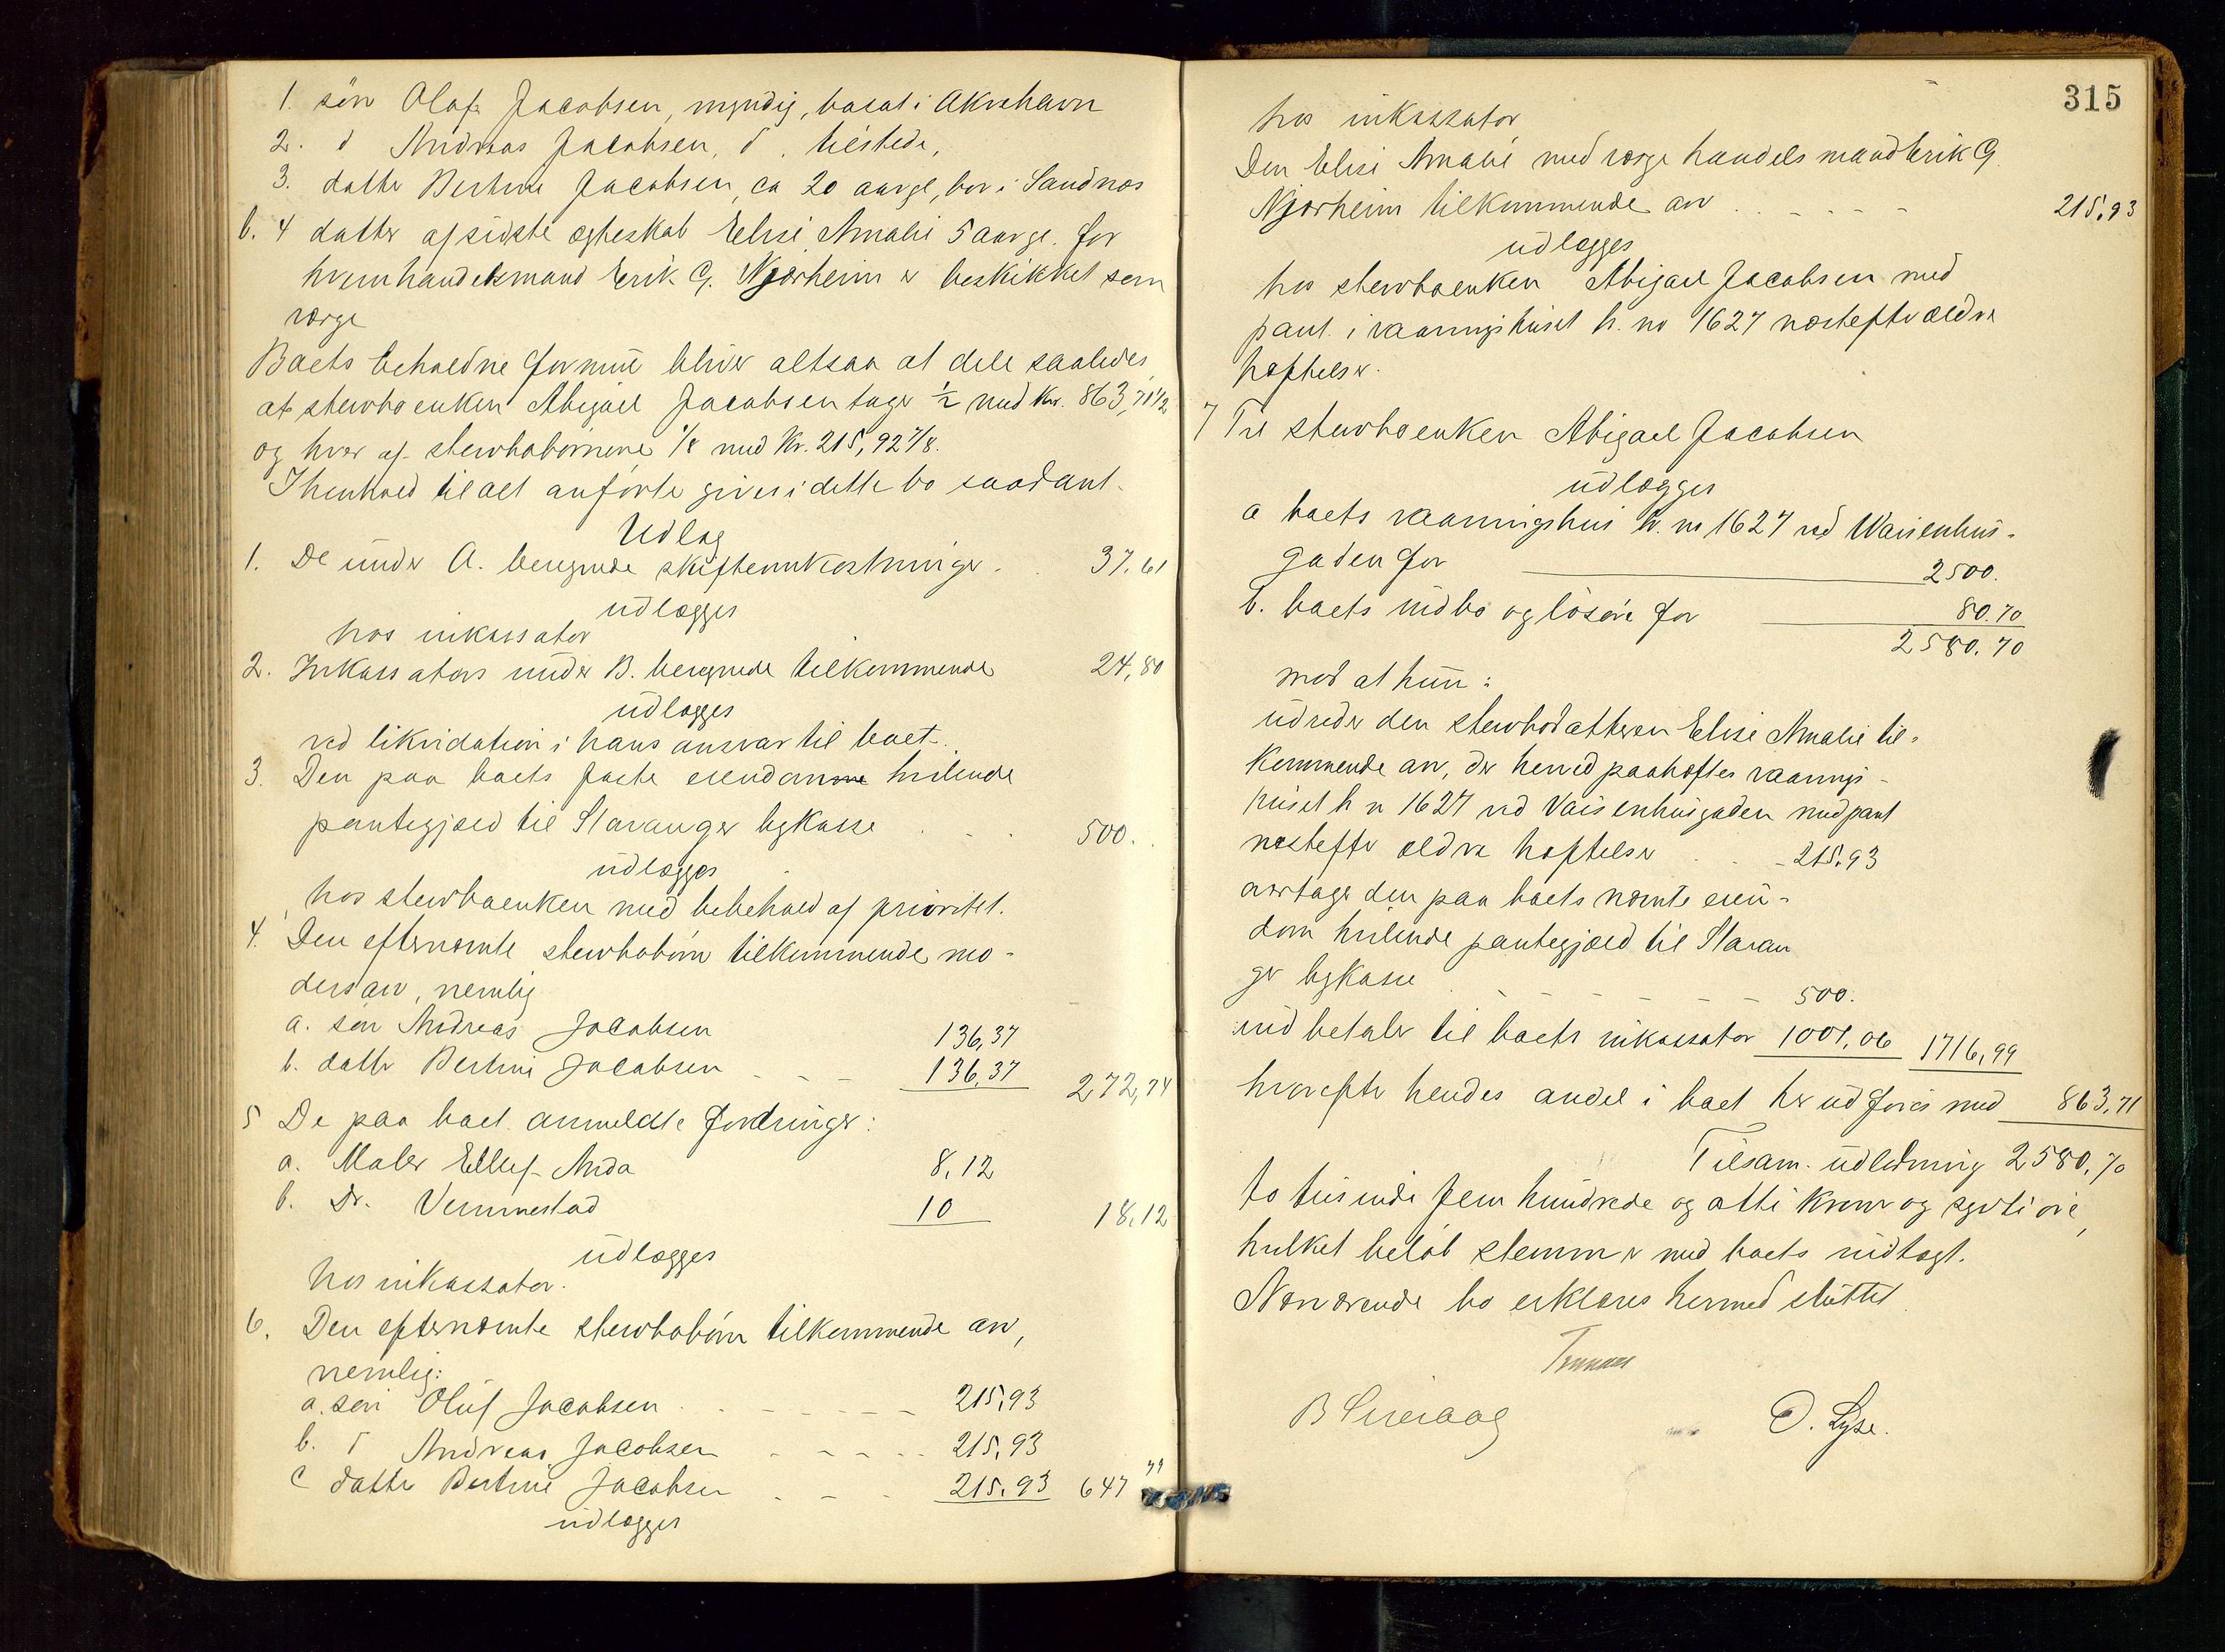 1. søn Oluf Jacobsen, myndig, bosat i Akrehavn
2. d Andreas Jacobsen, d, tilstede,
3. datter Bertine Jacobsen, ca 20 aar gl, bor i Sandnæs
b. 4 datter af sidste ægteskab Elise Amalie 5 aar gl. for
hvem handelsmand Erik G. Njærheim er beskikket som
værge
Boets beholdne formue bliver altsaa at dele saaledes
at stervboenken Abigael Jacobsen tager 1/2 med Kr. 863,71 1/2
og hver af stervbobørnene 1/8 med Kr. 215,92 7/8.
I henhold til alt anførte gives i dette bo saadant
Udlæg
1. De under A. beregnede skifteomkostninger . 37.61
udlægges
hos inkassator
2. Inkassators under B. beregnede tilkommende 24,80
udlægges
ved likvidation i hans ansvar til boet.
3. Den paa boets faste eiendom hvilende
pantegjæld til Stavanger bykasse . . . 500.
udlægges
hos stervboenken med bebehold af prioritet.
4. Den efternævnte stervbobørn tilkommende mo-
dersarv, nemlig
a. søn Andreas Jacobsen 136,37
b. datter Bertine Jacobsen - - - 136,37 272,74
5 De paa boet anmeldte fordringer:
a. Maler Elluf Anda 8,12
b. Dr. Vemmestad 10 18,12
udlægges
hos inkassator.
6. Den efternævnte stervbobørn tilkommende arv,
nemlig:
a. søn Oluf Jacobsen . - - - - - 215,93
b. d Andreas Jacobsen - - - - . 215,93
c datter Bertine Jacobsen - - - 215.93 647 79
udlægges
315
hos inkassator
Den Elise Amalie med værge handelsmand Erik G.
Njærheim tilkommende arv . . - - - - 215,93
udlægges
hos stervboenken Abigael Jacobsen med
pant i vaaningshuset h. no 1627 næstefter ældre
hæftelser.
7 Til stervboenken Abigael Jacobsen
udlægges
a boets vaaningshus h. no 1627 ved Waisenhus-
gaden for 2500.
b. boets indbo og løsøre for 80.70
2580.70
mod at hun:
udreder den stervbodatteren Elise Amalie til-
kommende arv, der herved paahæftes vaanings-
huset h n 1627 ved Vaisenhusgaden med pant
næstefter ældre hæftelser . . - 215.93
overtager den paa boets nævnte eien-
dom hvilende pantegjæld til Stavan
ger bykasse . - - - - - - 500.
indbetaler til boets inkassator 1001,06 1716,99
hvorefter hendes andel i boet her udføres med 863,71
Tilsam. udledning 2580,70
to tusinde fem hundrede og otti kroner og sytti øre,
hvilket beløb stemmer med boets indtægt.
Nærværende bo erklæres hermed sluttet.
O. Lyse.